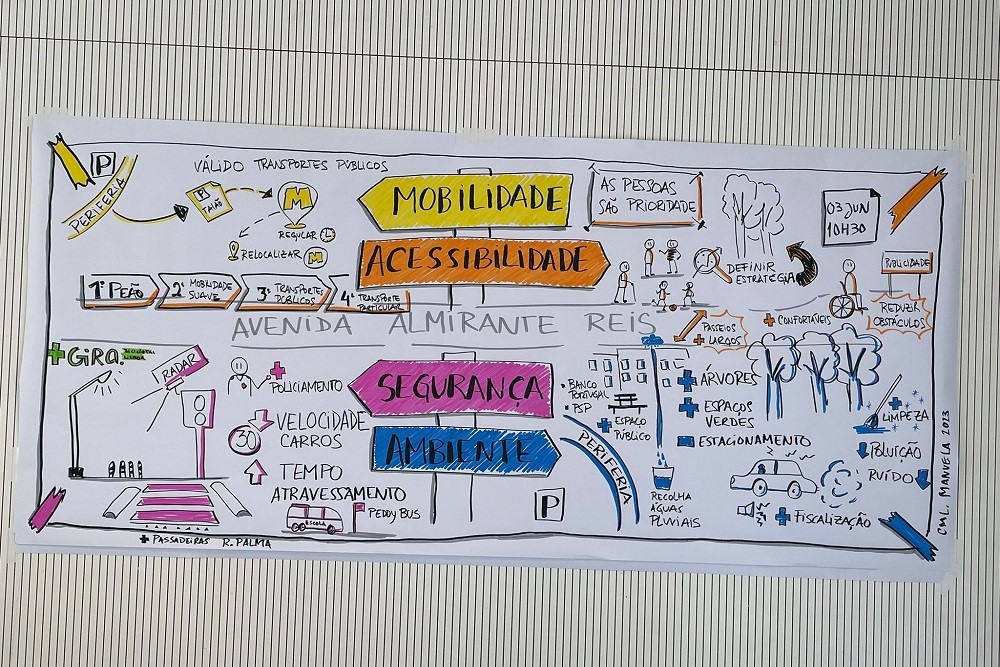 P
PERIFERIA
VÁLIDO TRANSPORTES PÚBLICOS
P
M
REGULAR
RELOCALIZAR M
MOBILIDADE
AS PESSOAS
SÃO PRIORIDADE
03 JUN
10H30
ACESSIBILIDADE
DEFINIR
ESTRATÉGIA
PUBLICIDADE
1º PEÃO
2º MOBILIDADE
SUAVE
3º TRANSPORTES
PÚBLICOS
4º TRANSPORTE
PARTICULAR
AVENIDA ALMIRANTE REIS
PASSEIOS
+ LARGOS
+ CONFORTÁVEIS
REDUZIR
OBSTÁCULOS
+ GIRA.
RADAR
+
POLICIAMENTO
SEGURANÇA
30
VELOCIDADE
CARROS
TEMPO
ATRAVESSAMENTO
ESCOLA
PEDDY BUS
+ PASSADEIRAS R. PALMA
AMBIENTE
BANCO
PORTUGAL
PSP
+ ESPAÇO
PÚBLICO
PERIFERIA
P
RECOLHA
ÁGUAS
PLUVIAIS
+ ÁRVORES
+ ESPAÇOS
VERDES
- ESTACIONAMENTO
+ LIMPEZA
POLUIÇÃO
RUÍDO
+ FISCALIZAÇÃO
CML. MANUELA 2023